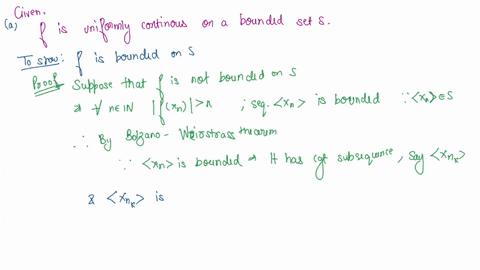 Given.
(a) f is uniformly continous on a bounded set S.
To show: f is bounded on S
Proof Suppose that f is not bounded on S
⇒ ∀ n∈ℕ |f(xn)|>n ; seq. <xn> is bounded ∵<xn>∈S
∴ By Bolzano - Weirstrass theorem
∵ <xn> is bounded ⇒ It has cgt subsequence, say <xnk>
& <xnk> is